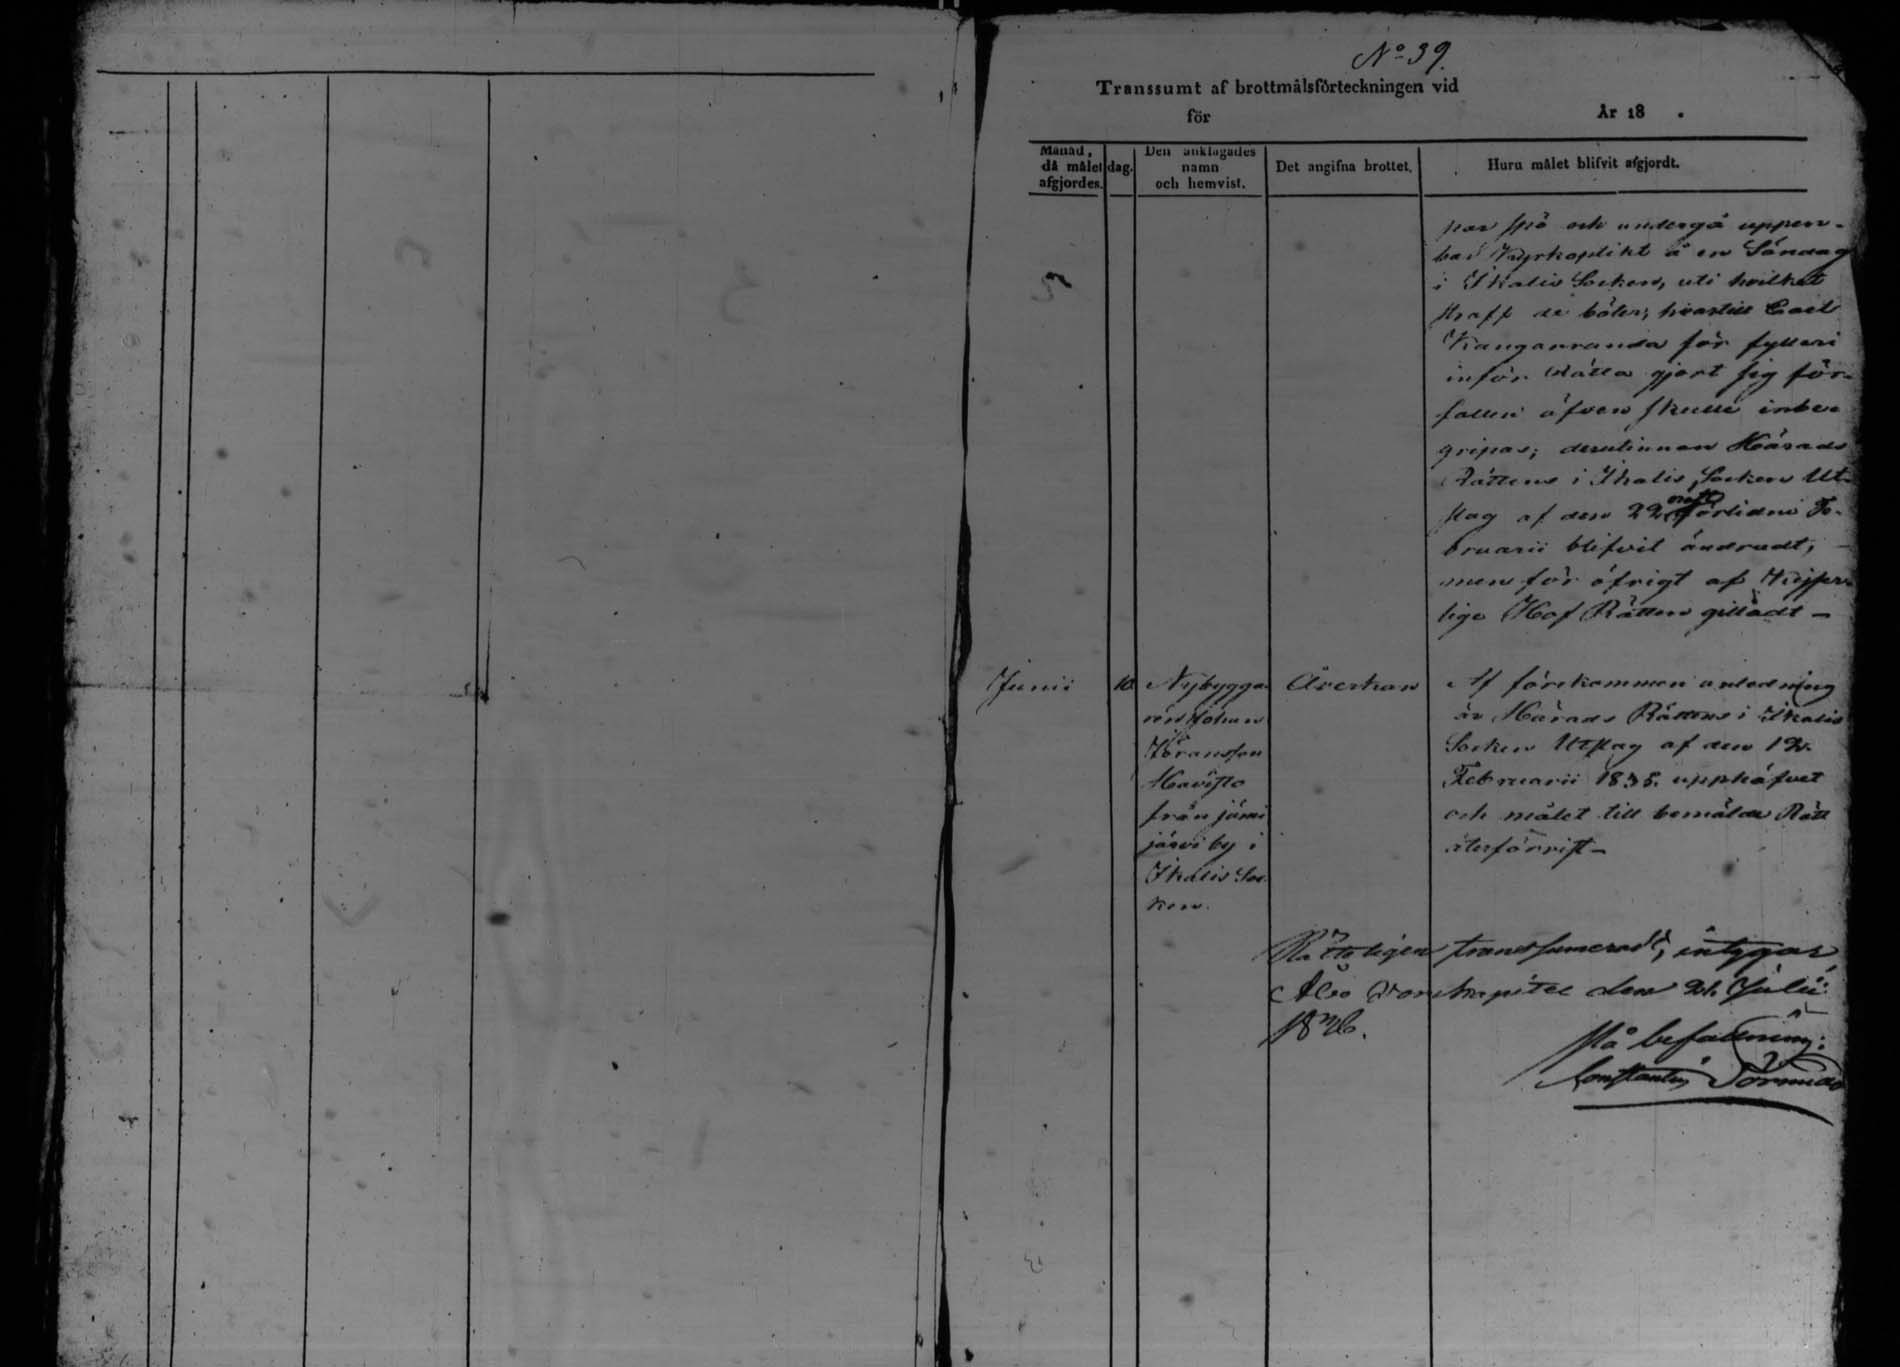 No 39.
Transsumt af brottmålsförteckningen vid
för År 18 .
Månad, då målet afgjordes.
dag.
Den anklagades namn och hemvist.
Det angifna brottet.
Huru målet blifvit afgjordt.
par spö och undergå uppen-
bar Kyrkoplikt å en Söndag
i Ikalis Socken, uti hvilket
straff de böter, hvartill Carl
Kanganranda för fylleri
inför Rätta gjort sig för-
fallen äfven skulle inbe-
gripas; derutinnan Härads
Rättens i Ikalis Socken Ut-
slag af den 22 förlidne Fe-
bruarii blifvit ändradt,
men för öfrigt af Kejser-
lige Hof Rätten gilladt –
Junii
10
Nybygga-
ren Johan
Göransson
Havisto
från Jämi
järvi by i
Ikalis Soc-
ken.
Åverkan
Af förekommen anledning
är Härads Rättens i Ikalis
Socken Utslag af den 12
Februarii 1835. upphäfvet
och målet till bemälde Rätt
återförvist –
Rätteligen transsumeradt, intygar
Åbo Domkapitel den 21 Julii
1836.
På befallning:
Constantin